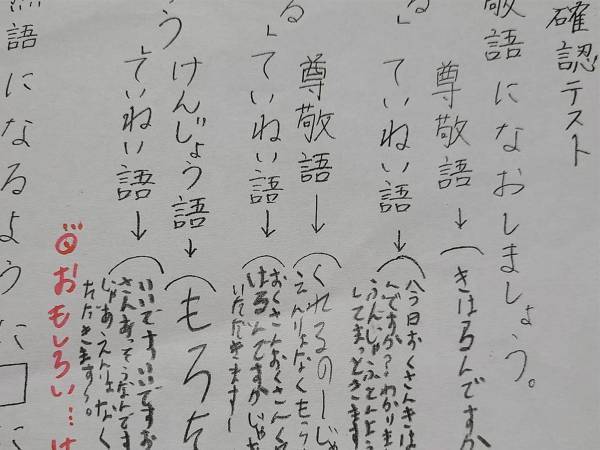 確認テスト
敬語になおしましょう。
尊敬語→(きはるんですか
る」ていねい語→(八今日おくさんきは
んですか?わかりま
してまっときます
尊敬語→(くれるのーじゃ
えんりょなくもらう
る」ていねい語→(おくさんおくさんく
はるんですかじゃあ
いただきますー
う けんじょう語→(もろた
」ていねい語→(いいですいいですお
さんあっそうなんです
じゃあえんりょなく
ただきます〜。
おもしろい…け
語になるように□に